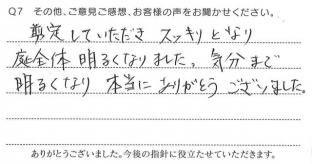 Q7 その他、ご意見ご感想、お客様の声をお聞かせください。
剪定していただき スッキリとなり
庭全体 明るくなりました。気分まで
明るくなり 本当に ありがとう ございました。
ありがとうございました。今後の指針に役立たせていただきます。